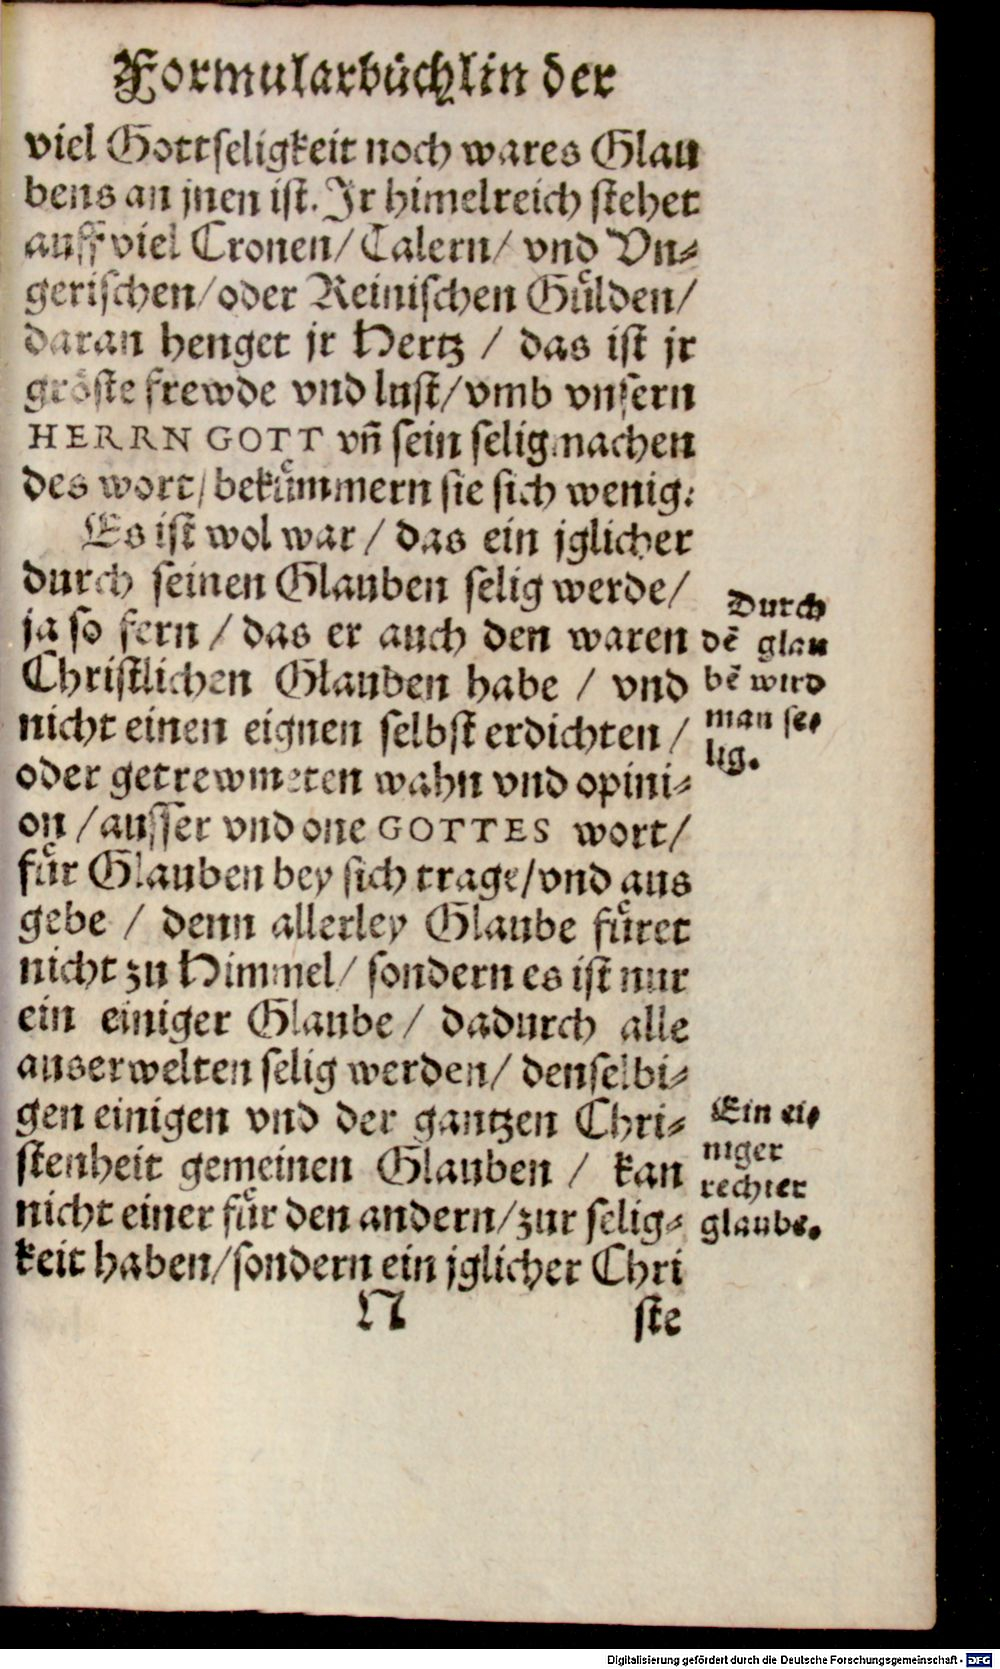 Formularbüchlin der
viel Gottseligkeit noch wares Glau
bens an jnen ist. Jr himelreich stehet
auff viel Cronen/ Talern/ vnd Vn⸗
gerischen/ oder Reinischen Guͤlden/
daran henget jr Hertz / das ist jr
groͤste frewde vnd lust/ vmb vnsern
HERRN GOTT vñ sein seligmachen
des wort/ bekuͤmmern sie sich wenig.
Es ist wol war / das ein jglicher
durch seinen Glauben selig werde/
ja so fern / das er auch den waren
Christlichen Glauben habe / vnd
nicht einen eignen selbst erdichten /
oder getrewmeten wahn vnd opini⸗
on / ausser vnd one GOTTES wort/
fuͤr Glauben bey sich trage/ vnd aus
gebe / denn allerley Glaube fuͤret
nicht zu Himmel/ sondern es ist nur
ein einiger Glaube/ dadurch alle
auserwelten selig werden/ denselbi⸗
gen einigen vnd der gantzen Chri⸗
stenheit gemeinen Glauben / kan
nicht einer fuͤr den andern/ zur selig⸗
keit haben/ sondern ein jglicher Chri
N ste
Durch
dẽ glau
bẽ wird
man se⸗
lig.
Ein ei⸗
niger
rechter
glaube.
Digitalisierung gefördert durch die Deutsche Forschungsgemeinschaft - DFG